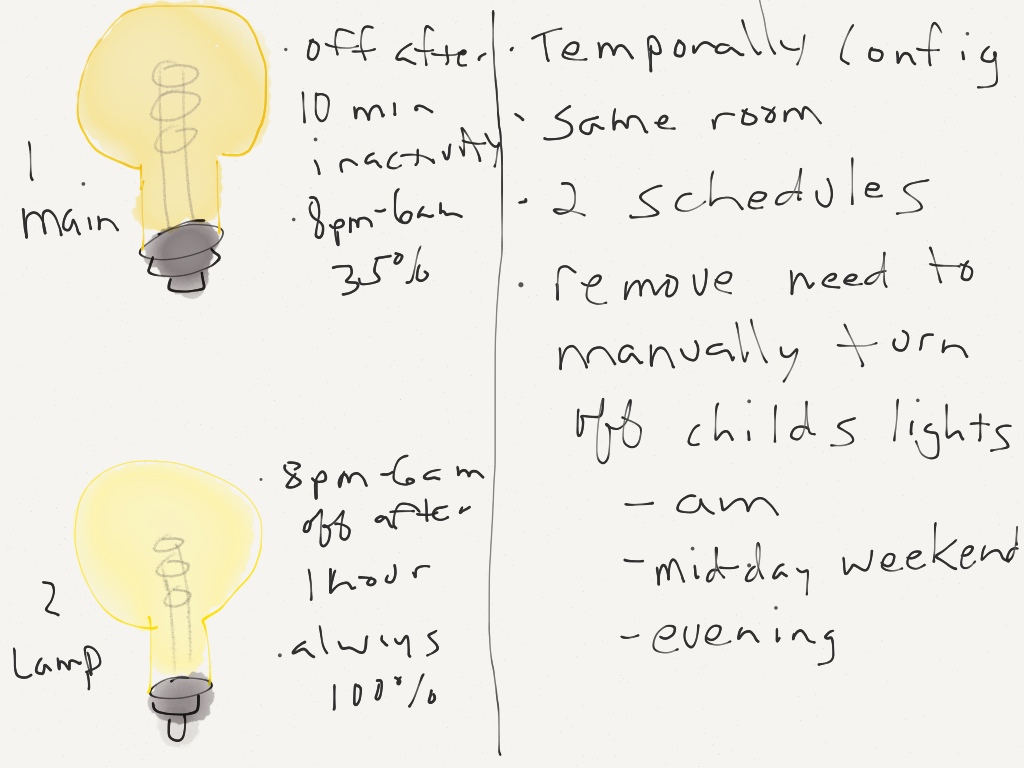 1
main
· off after
10 min
inactivity
· 8pm-6am
35%
2
Lamp
· 8pm-6am
off after
1 hour
· always
100%
· Temporally Config
· same room
· 2 schedules
· remove need to
manually turn
off childs lights
- am
- mid-day weekend
- evening